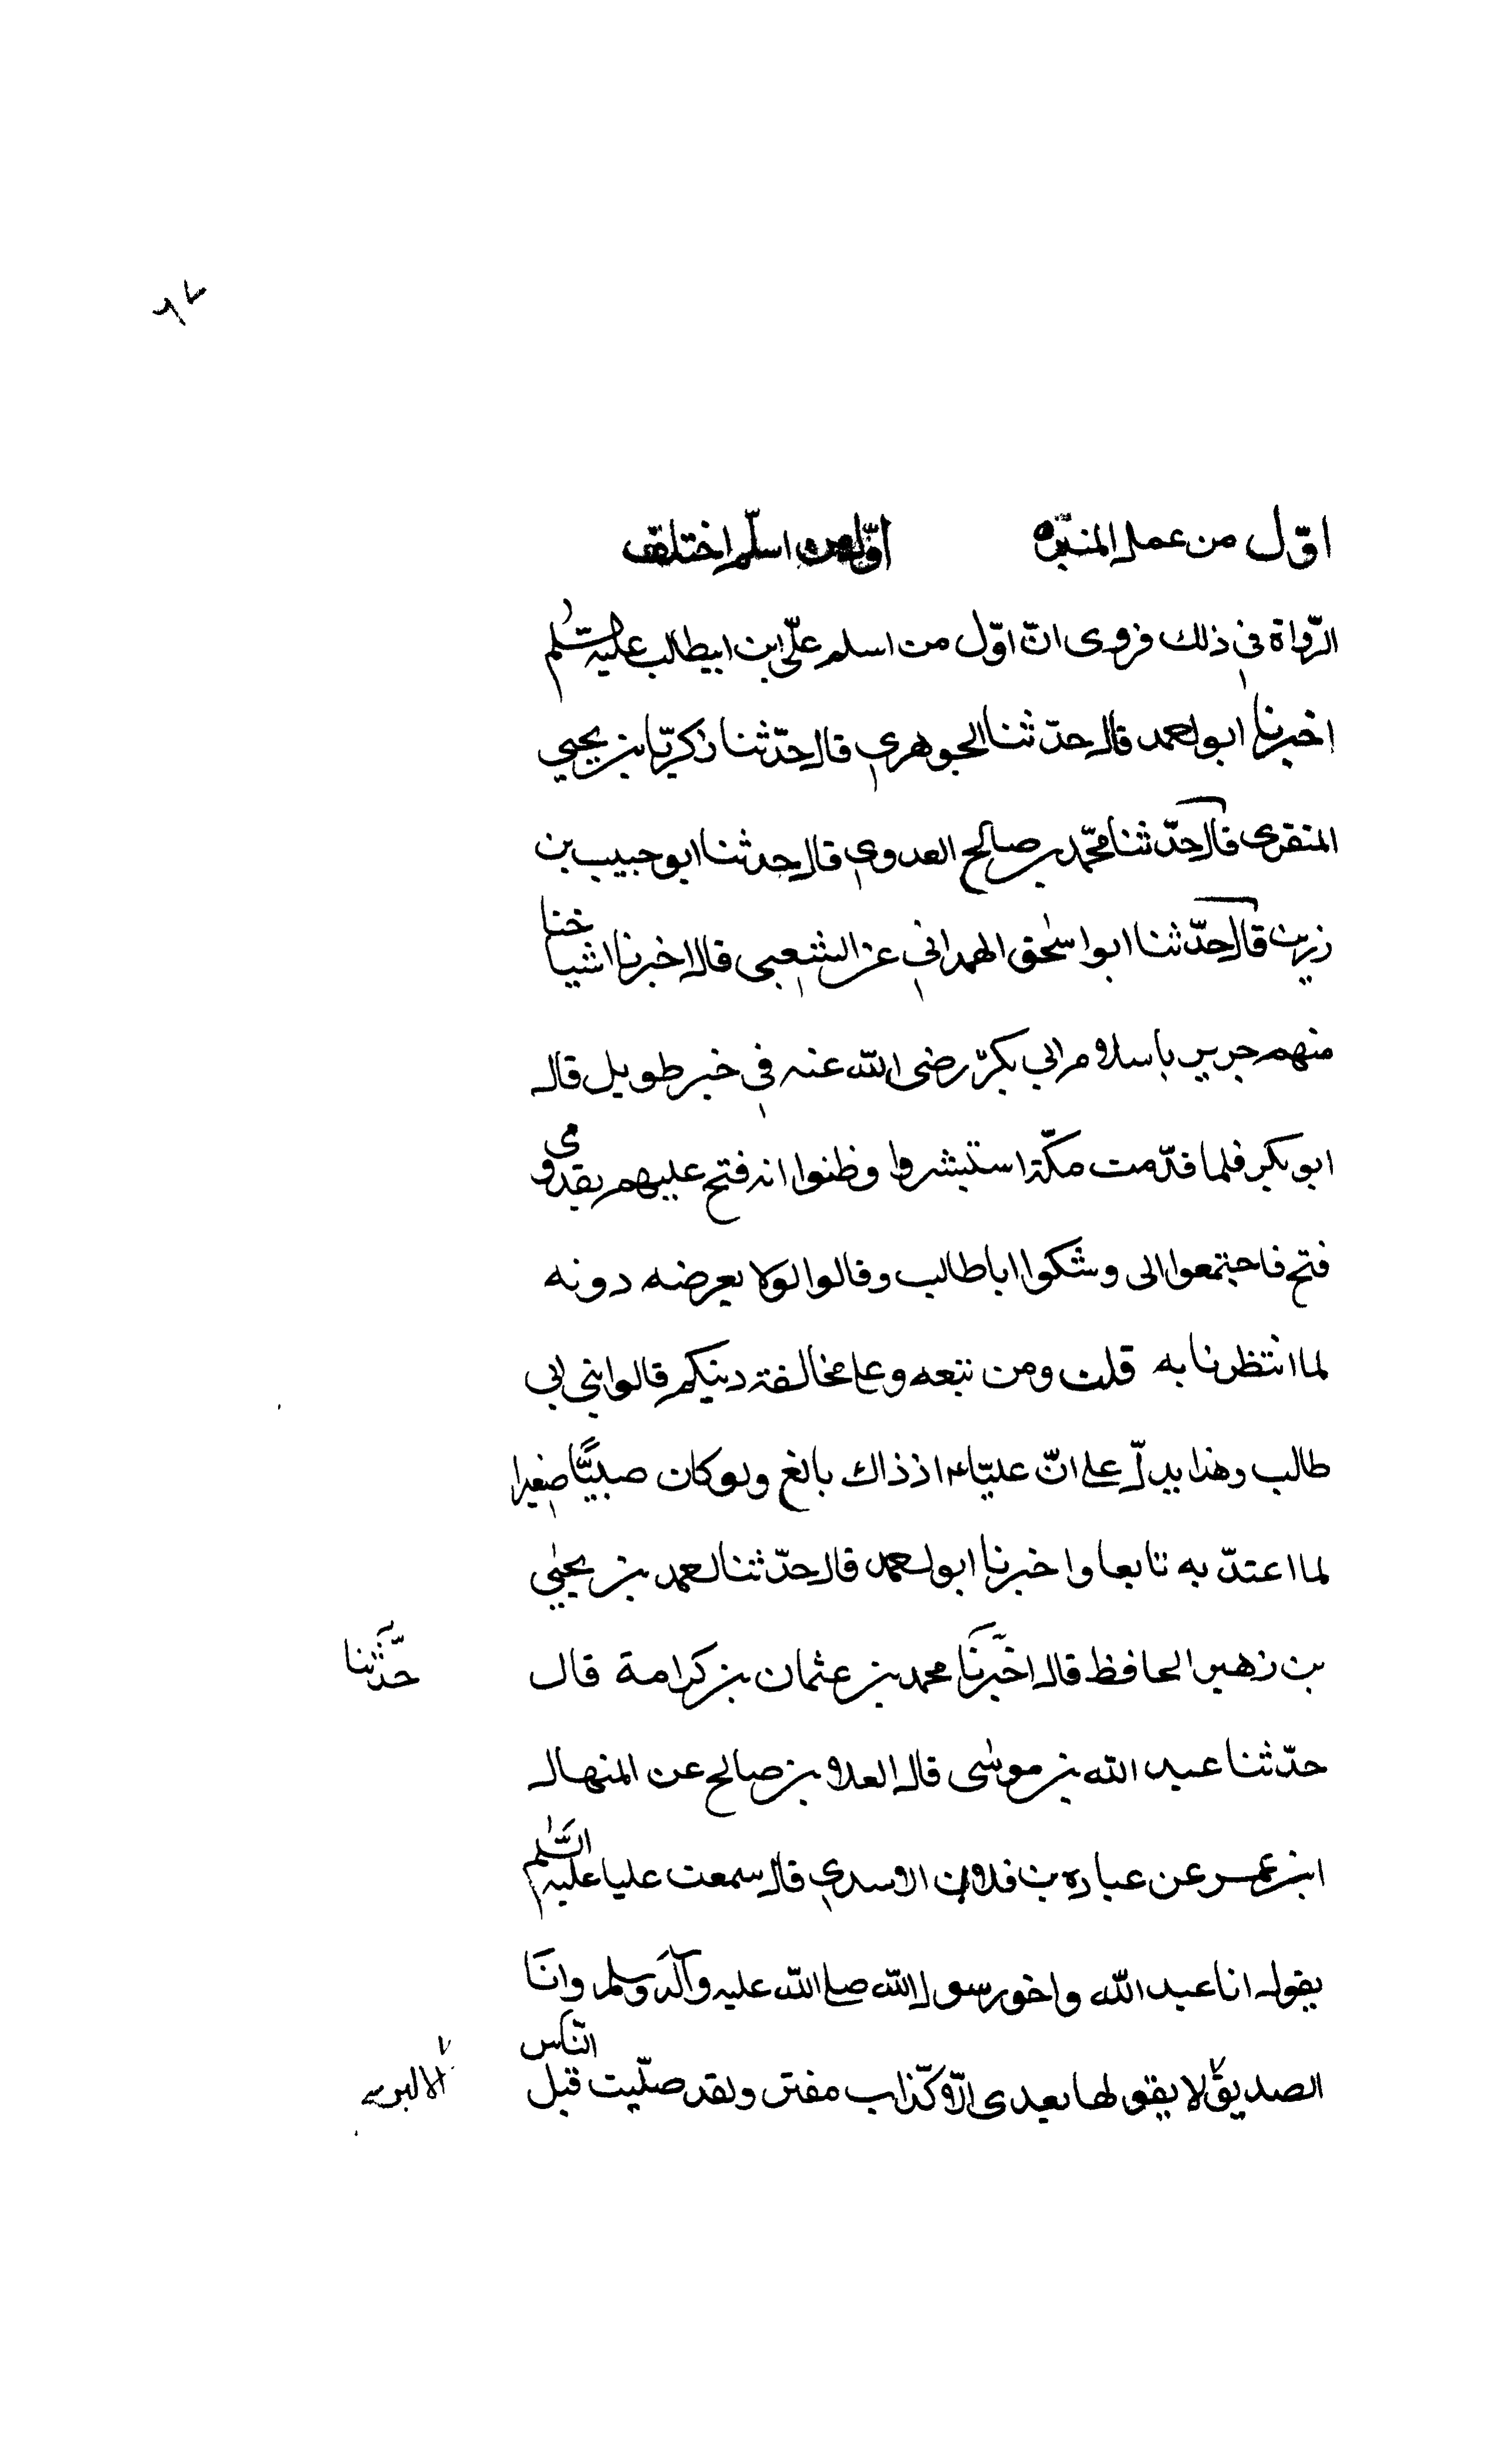 ٦٧
اوّل من عمل المنبر اوّل من اسلم اختلف
الرّواة في ذلك فروى انّ اوّل من اسلم علّى ابن ابيطالب عليه السّلم
اخبرنا ابو احمد قال حدّثنا الجوهري قال حدّثنا زكريّا بن يحيى
المنقرى قال حدّثنا محمّد بن صالح العدوي قال حدثنا ابو حبيب بن
زرين قال حدّثنا ابو اسحق الهمداني عن الشعبي قال اخبرنا اشياخنا
منهم جرير باسلام ابي بكر رضى الله عنه في خبر طويل قال
ابو بكر فلما قدّمت مكّة استبشروا وظنوا انه فتح عليهم بقدومى
فتح فاجتمعوا الى وشكوا اباطالب وقالوا لولا يعرضه دونه
لما انتظرنا به قلت ومن تبعه وعلى مخالفة دينكم قالوا بنى ابى
طالب وهذا يدلّ على انّ عليّا اذ ذاك بالغ ولو كان صبيًّا صغيرا
لما اعتدّ به تابعا واخبرنا ابو احمد قال حدّثنا احمد بن يحيى
بن زهير الحافظ قال اخبرنا محمد بن عثمان بن كرامة قال
حدّثنا
حدّثنا عبيد الله بن موسى قال العلا بن صالح عن المنهال
ابن عمر عن عباده بن فلان الاسدي قال سمعت عليا عليه السّلم
يقول انا عبد الله واخو رسول الله صلى الله عليه وآله وسلم وانا
الصديق لا يقولها بعدى الّا كذّاب مفتر ولقد صلّيت قبل النّاس
الاكبر